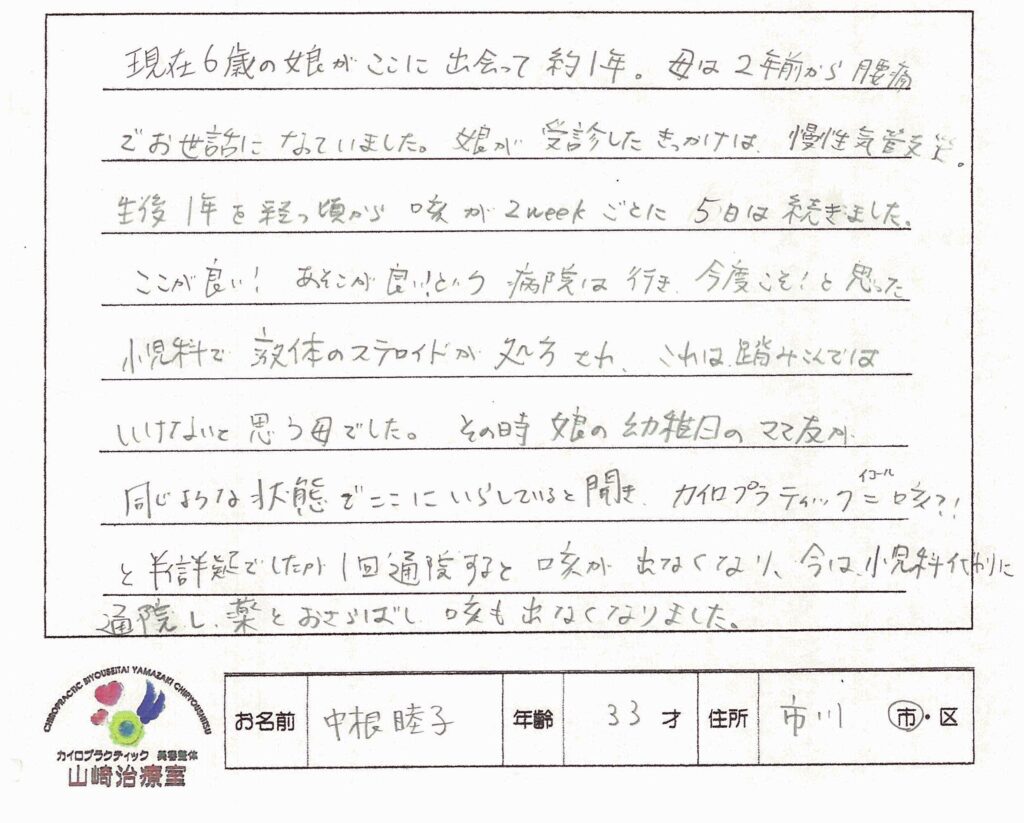 現在6歳の娘がここに出会って約1年。母は2年前から腰痛
でお世話になっていました。娘が受診したきっかけは、慢性気管支炎。
生後1年を経つ頃から咳が2weekごとに5日は続きました。
ここが良い!あそこが良い!という病院は行き、今度こそ!と思った
小児科で液体のステロイドが処方され、これは踏みこんでは
いけないと思う母でした。その時娘の幼稚園のママ友が
同じような状態でここにいらしていると聞き、カイロプラティック=咳?!
イコール
と半信詳疑でしたが1回通院すると咳が出なくなり、今は、小児科代わりに
通院し、薬とおさらばし、咳も出なくなりました。
CHIROPRACTIC BIYOUSEITAI YAMAZAKI CHIRYOUSHITSU
カイロプラクティック 美容整体
山﨑治療室
お名前 中根睦子 年齢 33才 住所 市川 市・区